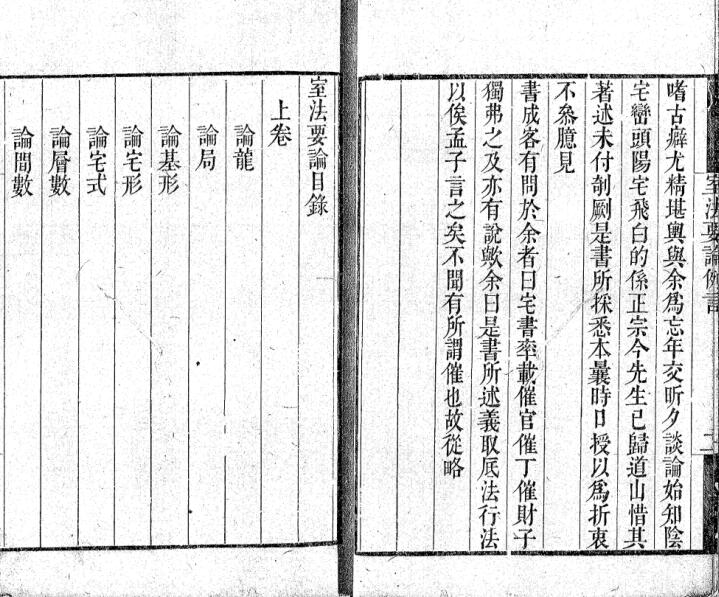 嗜古癖尤精堪輿與余爲忘年交昕夕談論始知陰
宅巒頭陽宅飛白的係正宗今先生已歸道山惜其
著述未付剞劂是書所採悉本曩時口授以爲折衷
不叅臆見
書成客有問於余者曰宅書率載催官催丁催財子
獨弗之及亦有說歟余曰是書所述義取居法行法
以俟孟子言之矣不聞有所謂催也故從略
室法要論例言
二
室法要論目錄
上卷
論龍
論局
論基形
論宅形
論宅式
論層數
論間數